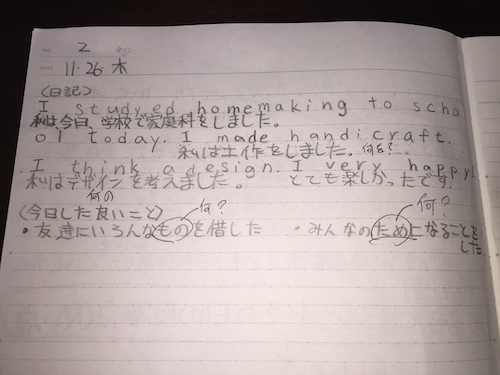 2
11・26 木
〈日記〉
I studyed homemaking to scho
私は、今日、学校で家庭科をしました。
ol today. I made handicraft.
私は土作をしました。 何を?
I think a design. I very happy!
私はデザインを考えました。 とても楽しかったです。
何の
〈今日した良いこと〉 何? 何?
・友達にいろんなものを借した ・みんなのためになることを
した。